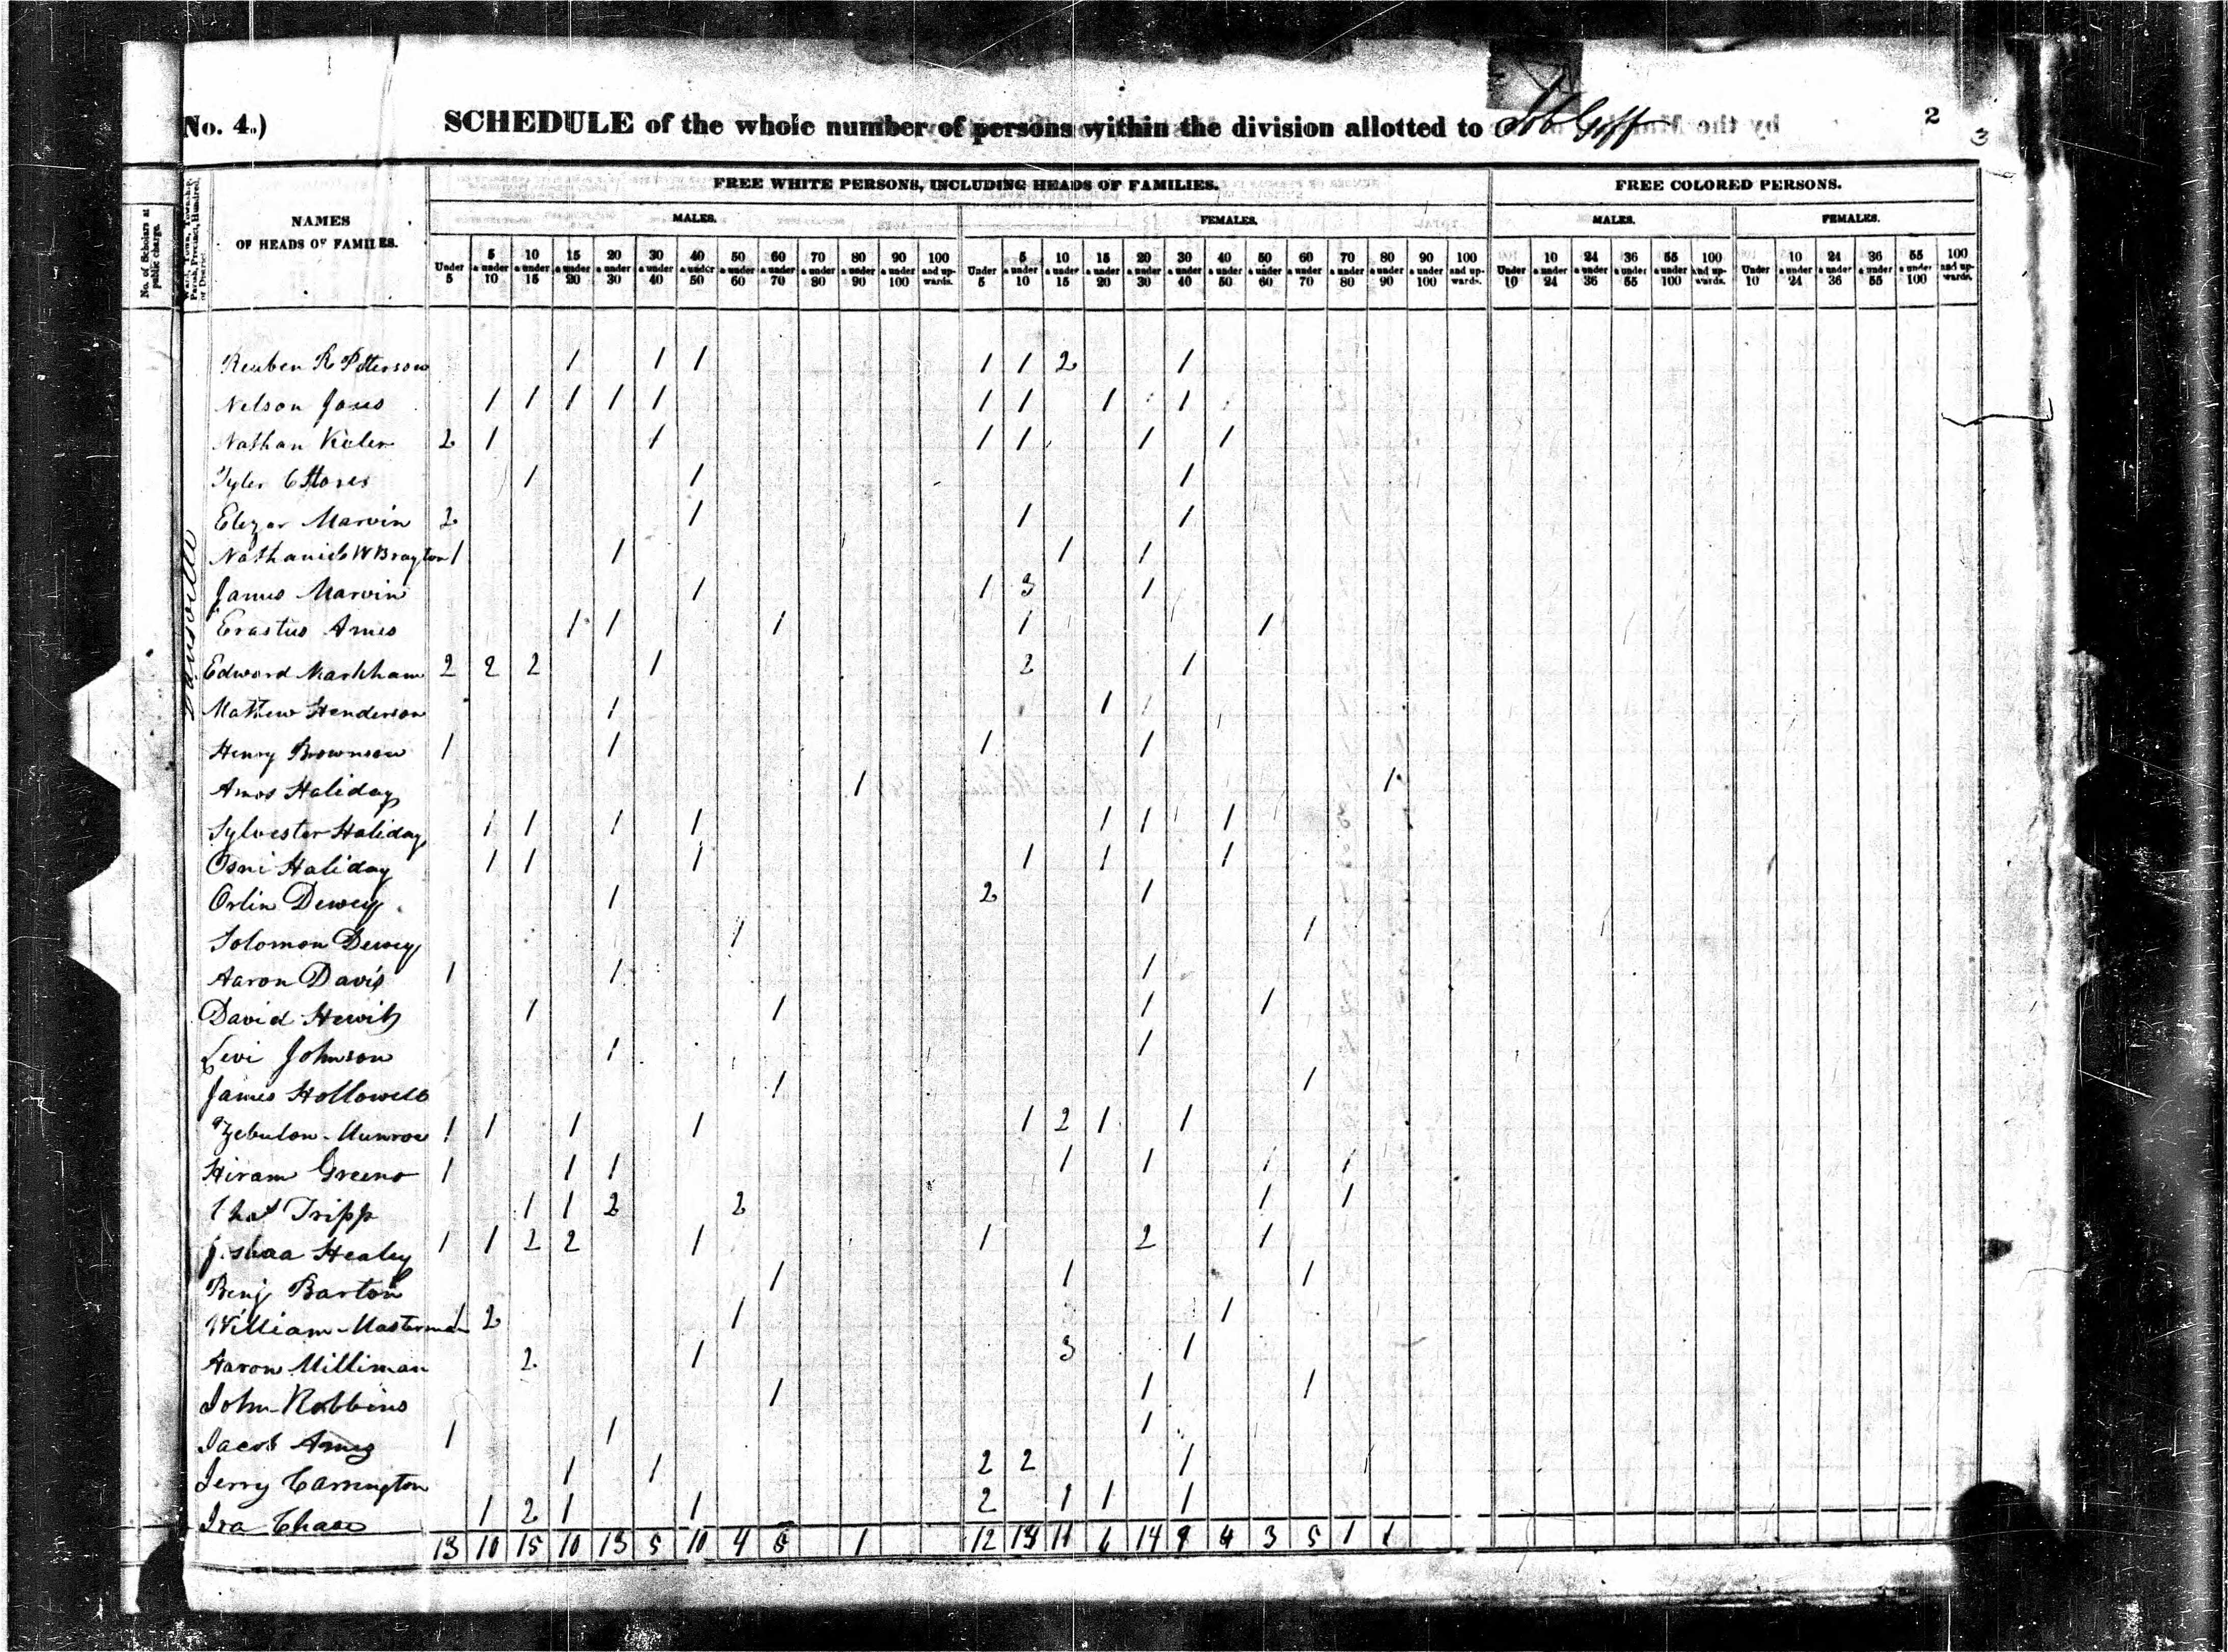 No. 4.) SCHEDULE of the whole number of persons within the division allotted to Job Goff by the 2
3
FREE WHITE PERSONS, INCLUDING HEADS OF FAMILIES. FREE COLORED PERSONS.
No. of Scholars at public charge.
NAMES OF HEADS OF FAMILIES.
MALES. FEMALES. MALES. FEMALES.
Under 5 5 a under 10 10 a under 15 15 a under 20 20 a under 30 30 a under 40 40 a under 50 50 a under 60 60 a under 70 70 a under 80 80 a under 90 90 a under 100 100 and upwards. Under 5 5 a under 10 10 a under 15 15 a under 20 20 a under 30 30 a under 40 40 a under 50 50 a under 60 60 a under 70 70 a under 80 80 a under 90 90 a under 100 100 and upwards. Under 10 10 a under 24 24 a under 36 36 a under 55 55 a under 100 100 and upwards. Under 10 10 a under 24 24 a under 36 36 a under 55 55 a under 100 100 and upwards.
Dansville
Reuben R Patterson 1 1 1 1 1 2 1
Nelson Jones 1 1 1 1 1 1 1 1 1
Nathan Keeler 2 1 1 1 1 1 1
Tyler C Stores 1 1 1
Elezer Marvin 2 1 1 1
Nathaniel W Brayton 1 1 1 1
James Marvin 1 1 3 1
Erastus Ames 1 1 1 1 1
Edward Markham 2 2 2 1 2 1
Mathew Henderson 1 1
Henry Brownson 1 1 1 1
Amos Haliday 1 1
Sylvester Haliday 1 1 1 1 1 1 1
Osni Haliday 1 1 1 1 1 1
Orlin Dewey 1 2 1
Solomon Dewey 1 1
Aaron Davis 1 1 1
David Hewitt 1 1 1 1
Levi Johnson 1 1
James Hollowell 1 1
Zebulon Munroe 1 1 1 1 1 2 1 1
Hiram Greeno 1 1 1 1 1 1 1
Tripp 1 1 2 2 1 1
Joshua Healey 1 1 2 2 1 1 2 1
Benj Barton 1 1 1
William Masterman 1 2 1 1
Aaron Milliman 2 1 3 1
John Robbins 1 1 1
Jacob Ames 1 1 1
Jerry Carrington 1 1 2 2 1
Ira Chase 1 2 1 1 2 1 1 1
13 10 15 10 13 5 10 4 1 12 14 11 6 14 9 4 3 5 1 1